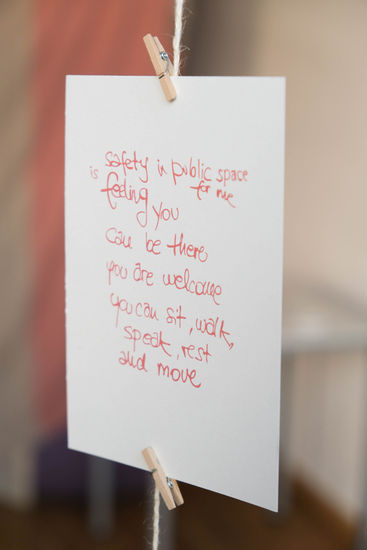 safety in public space
for me
is feeling you
can be there
you are welcome
you can sit, walk,
speak, rest
and move